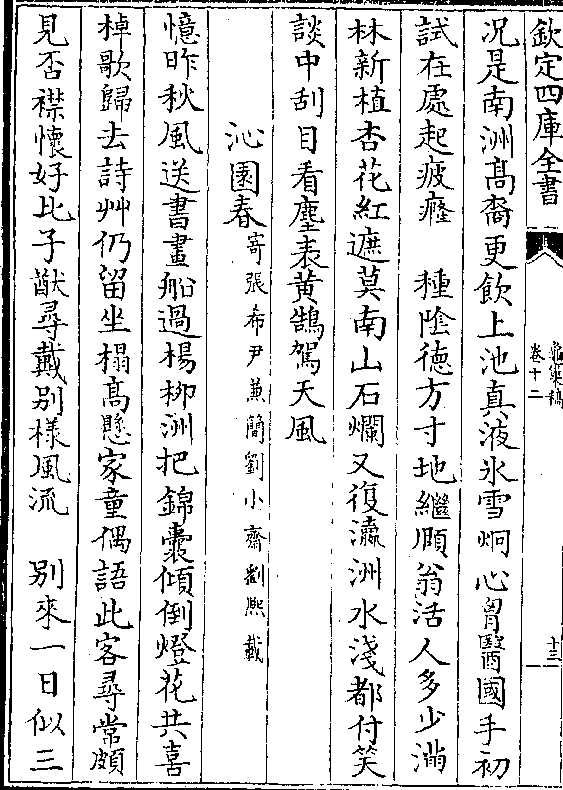 欽定四庫全書
龜巢稿
卷十二
十三
况是南洲髙裔更飲上池真液氷雪烱心胷醫國手初
試在處起疲癃　種隂徳方寸地繼順翁活人多少滿
林新植杏花紅遮莫南山石爛又復瀛洲水淺都付笑
談中刮目看塵表黄鵠駕天風
沁園春寄張希尹兼簡劉小齋劉熈載
憶昨秋風送書畫船過楊柳洲把錦囊傾倒燈花共喜
棹歌歸去詩艸仍留坐榻髙懸家童偶語此客尋常頗
見否襟懷好比子猷尋戴别様風流　别來一日似三